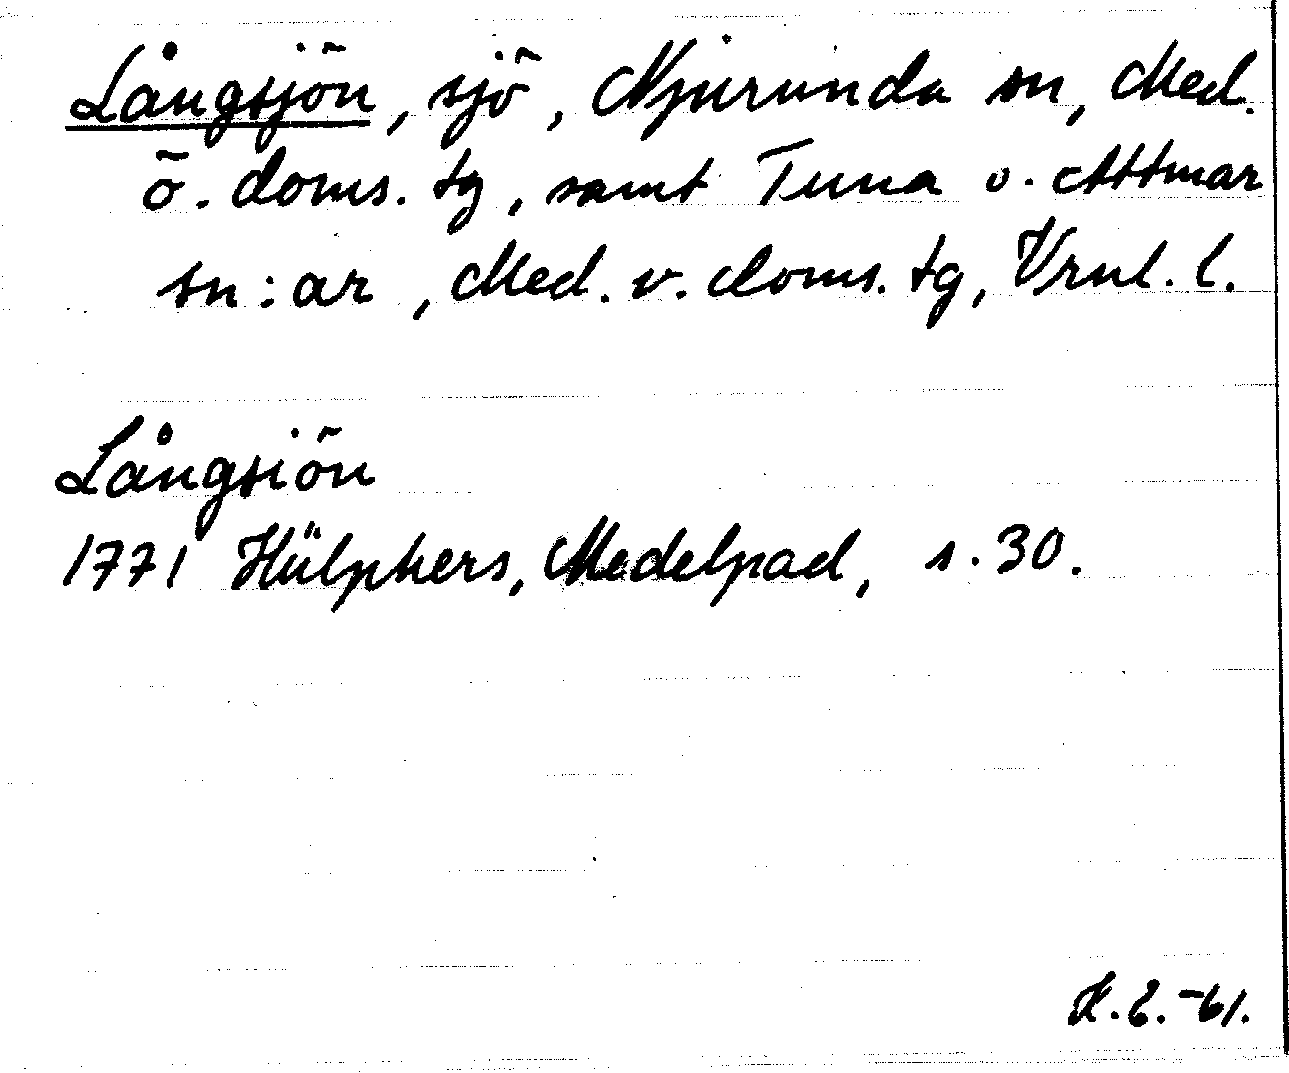 Långsjön, sjö, Njurunda sn, Med.
ö. doms. tg, samt Tuna o. Attmar
sn:ar, Med. v. doms. tg, Vrnl. l.
Långsiön
1771 Hülphers, Medelpad, s. 30.
K.E.-61.